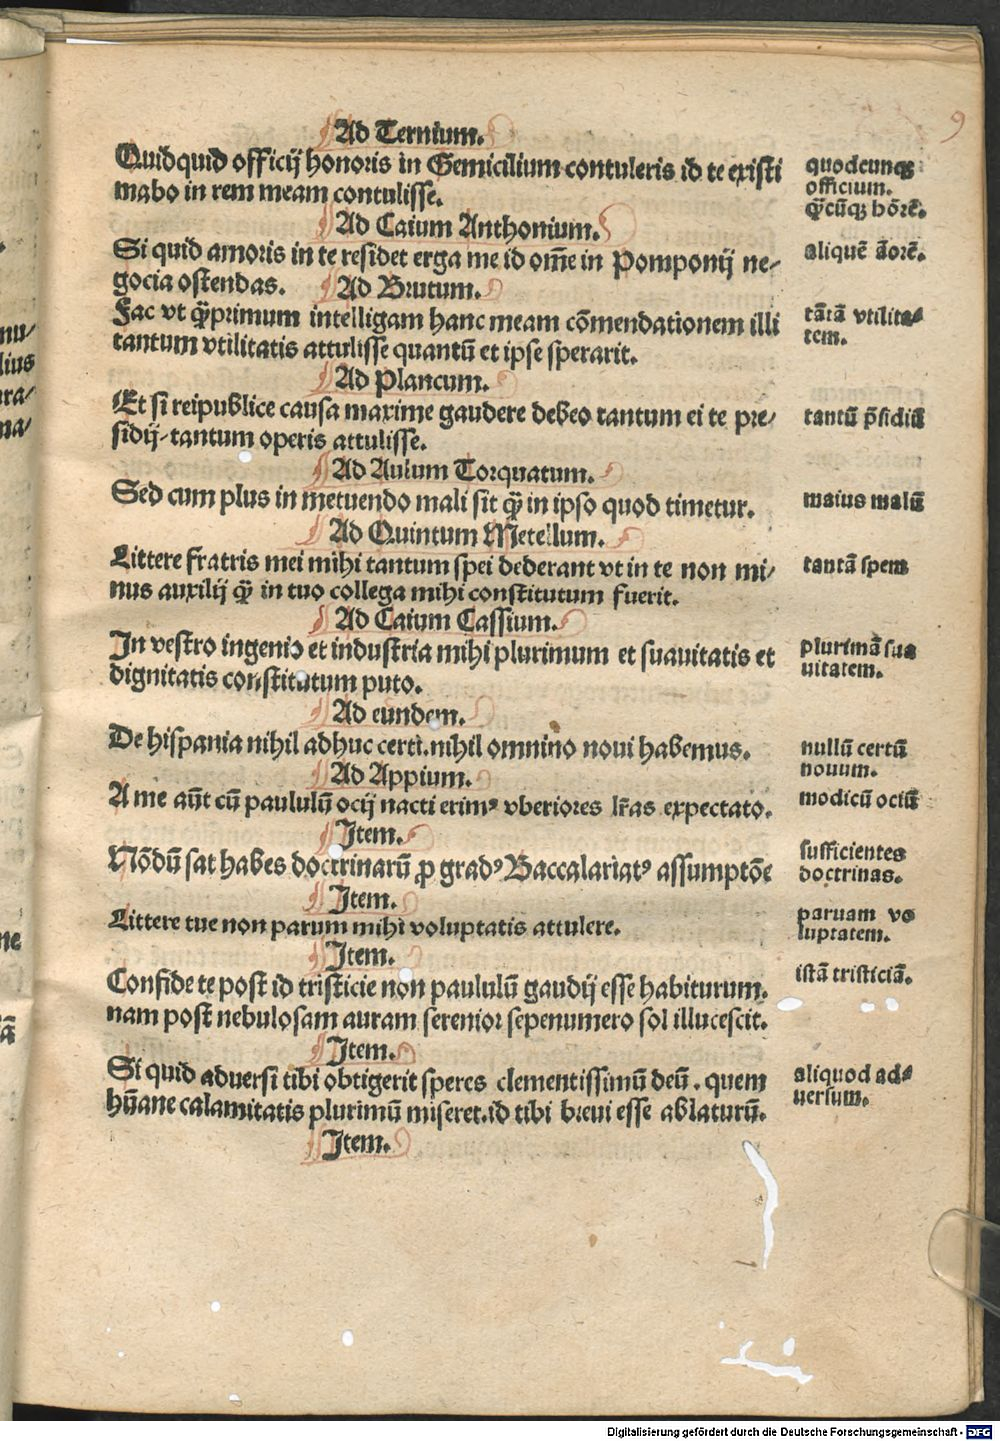 9
Ad Ternium.
Quidquid officij honoris in Gemicilium contuleris id te existi
mabo in rem meam contulisse.
quodcunqꝫ
officium.
q̄cūqꝫ hōrē.
Ad Caium Anthonium.
Si quid amoris in te residet erga me id om̄e in Pomponij ne-
gocia ostendas. Ad Brutum.
aliquē āorē.
Fac vt q̄primum intelligam hanc meam cōmendationem illi
tantum vtilitatis attulisse quantū et ipse sperarit.
tātā vtilita-
tem.
Ad Plancum.
Et si reipublice causa maxime gaudere debeo tantum ei te pre-
sidij-tantum operis attulisse.
tantū p̄sidiū
Ad Aulum Torquatum.
Sed cum plus in metuendo mali sit q̄ in ipso quod timetur.
maius malū
Ad Quintum Metellum.
Littere fratris mei mihi tantum spei dederant vt in te non mi-
nus auxilij q̄ in tuo collega mihi constitutum fuerit.
tantā spem
Ad Caium Cassium.
In vestro ingenio et industria mihi plurimum et suauitatis et
dignitatis constitutum puto.
plurimā sua
uitatem.
Ad eundem.
De hispania nihil adhuc certi.nihil omnino noui habemus.
nullū certū
nouum.
Ad Appium.
A me aūt cū paululū ocij nacti erimꝰ vberiores lr̄as expectato.
modicū ociū
Item.
Nōdū sat habes doctrinarū ꝓ gradꝰ Baccalariatꝰ assumptōe
sufficientes
doctrinas.
Item.
Littere tue non parum mihi voluptatis attulere.
paruam vo
luptatem.
Item.
Confide te post id tristicie non paululū gaudij esse habiturum.
nam post nebulosam auram serenior sepenumero sol illucescit.
istā tristiciā.
Item.
Si quid aduersi tibi obtigerit speres clementissimū deū. quem
hūane calamitatis plurimū miseret.id tibi breui esse ablaturū.
aliquod ad-
uersum.
Item.
Digitalisierung gefördert durch die Deutsche Forschungsgemeinschaft - DFG